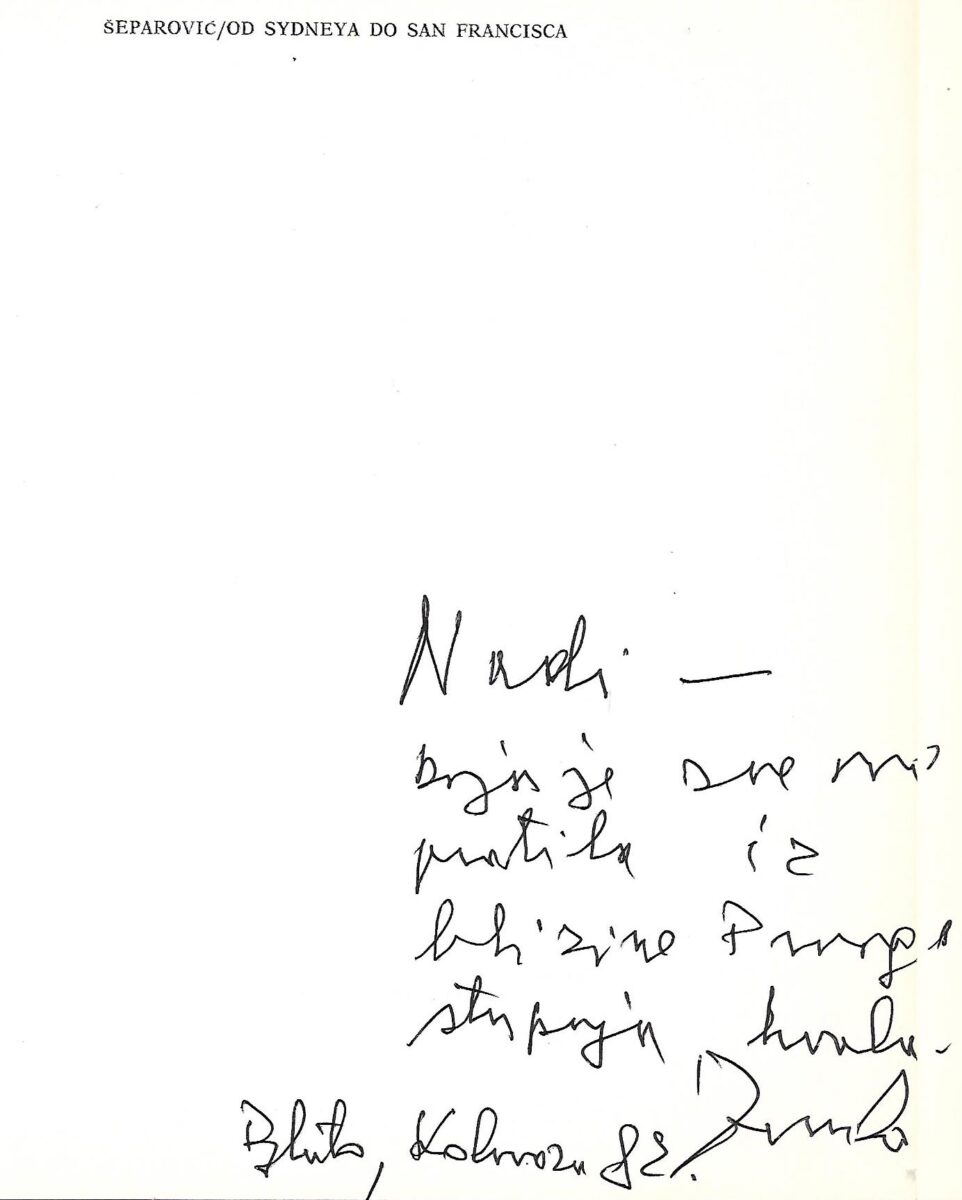 ŠEPAROVIĆ/OD SYDNEYA DO SAN FRANCISCA
Nadi —
koja je sve
pratila iz
blizine Prvoga
stupnja hvala.
Blato, Kolovoza 82.